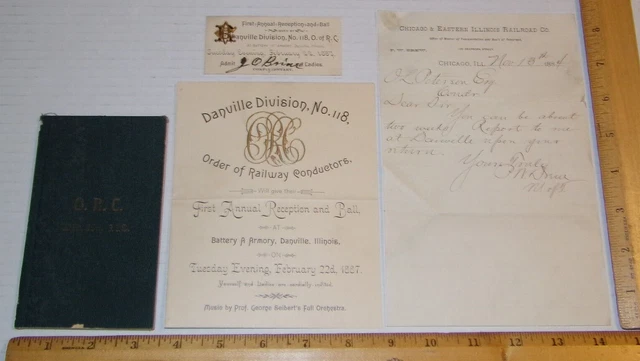 First Annual Reception and Ball
Danville Division, No. 118, O. of R. C.
Tuesday Evening, February 22, 1887.
Admit J O Brine Ladies.
O. R. C.
Danville Division, No. 118.
ORC
Order of Railway Conductors.
Will give their
First Annual Reception and Ball,
AT
Battery A Armory, Danville, Illinois,
ON
Tuesday Evening, February 22d, 1887.
Yourself and ladies are cordially invited.
Music by Prof. George Seibert's Full Orchestra.
Chicago & Eastern Illinois Railroad Co.
Chicago, Ill. Nov 10th
Esq
Condr
Dear Sir
You can be absent
two weeks. Report to me
at Danville upon your
return.
Yours Truly
1 2 3 4 5 6 7 8 9 10 11 12 13 14
1 2 3 4 5 6 7